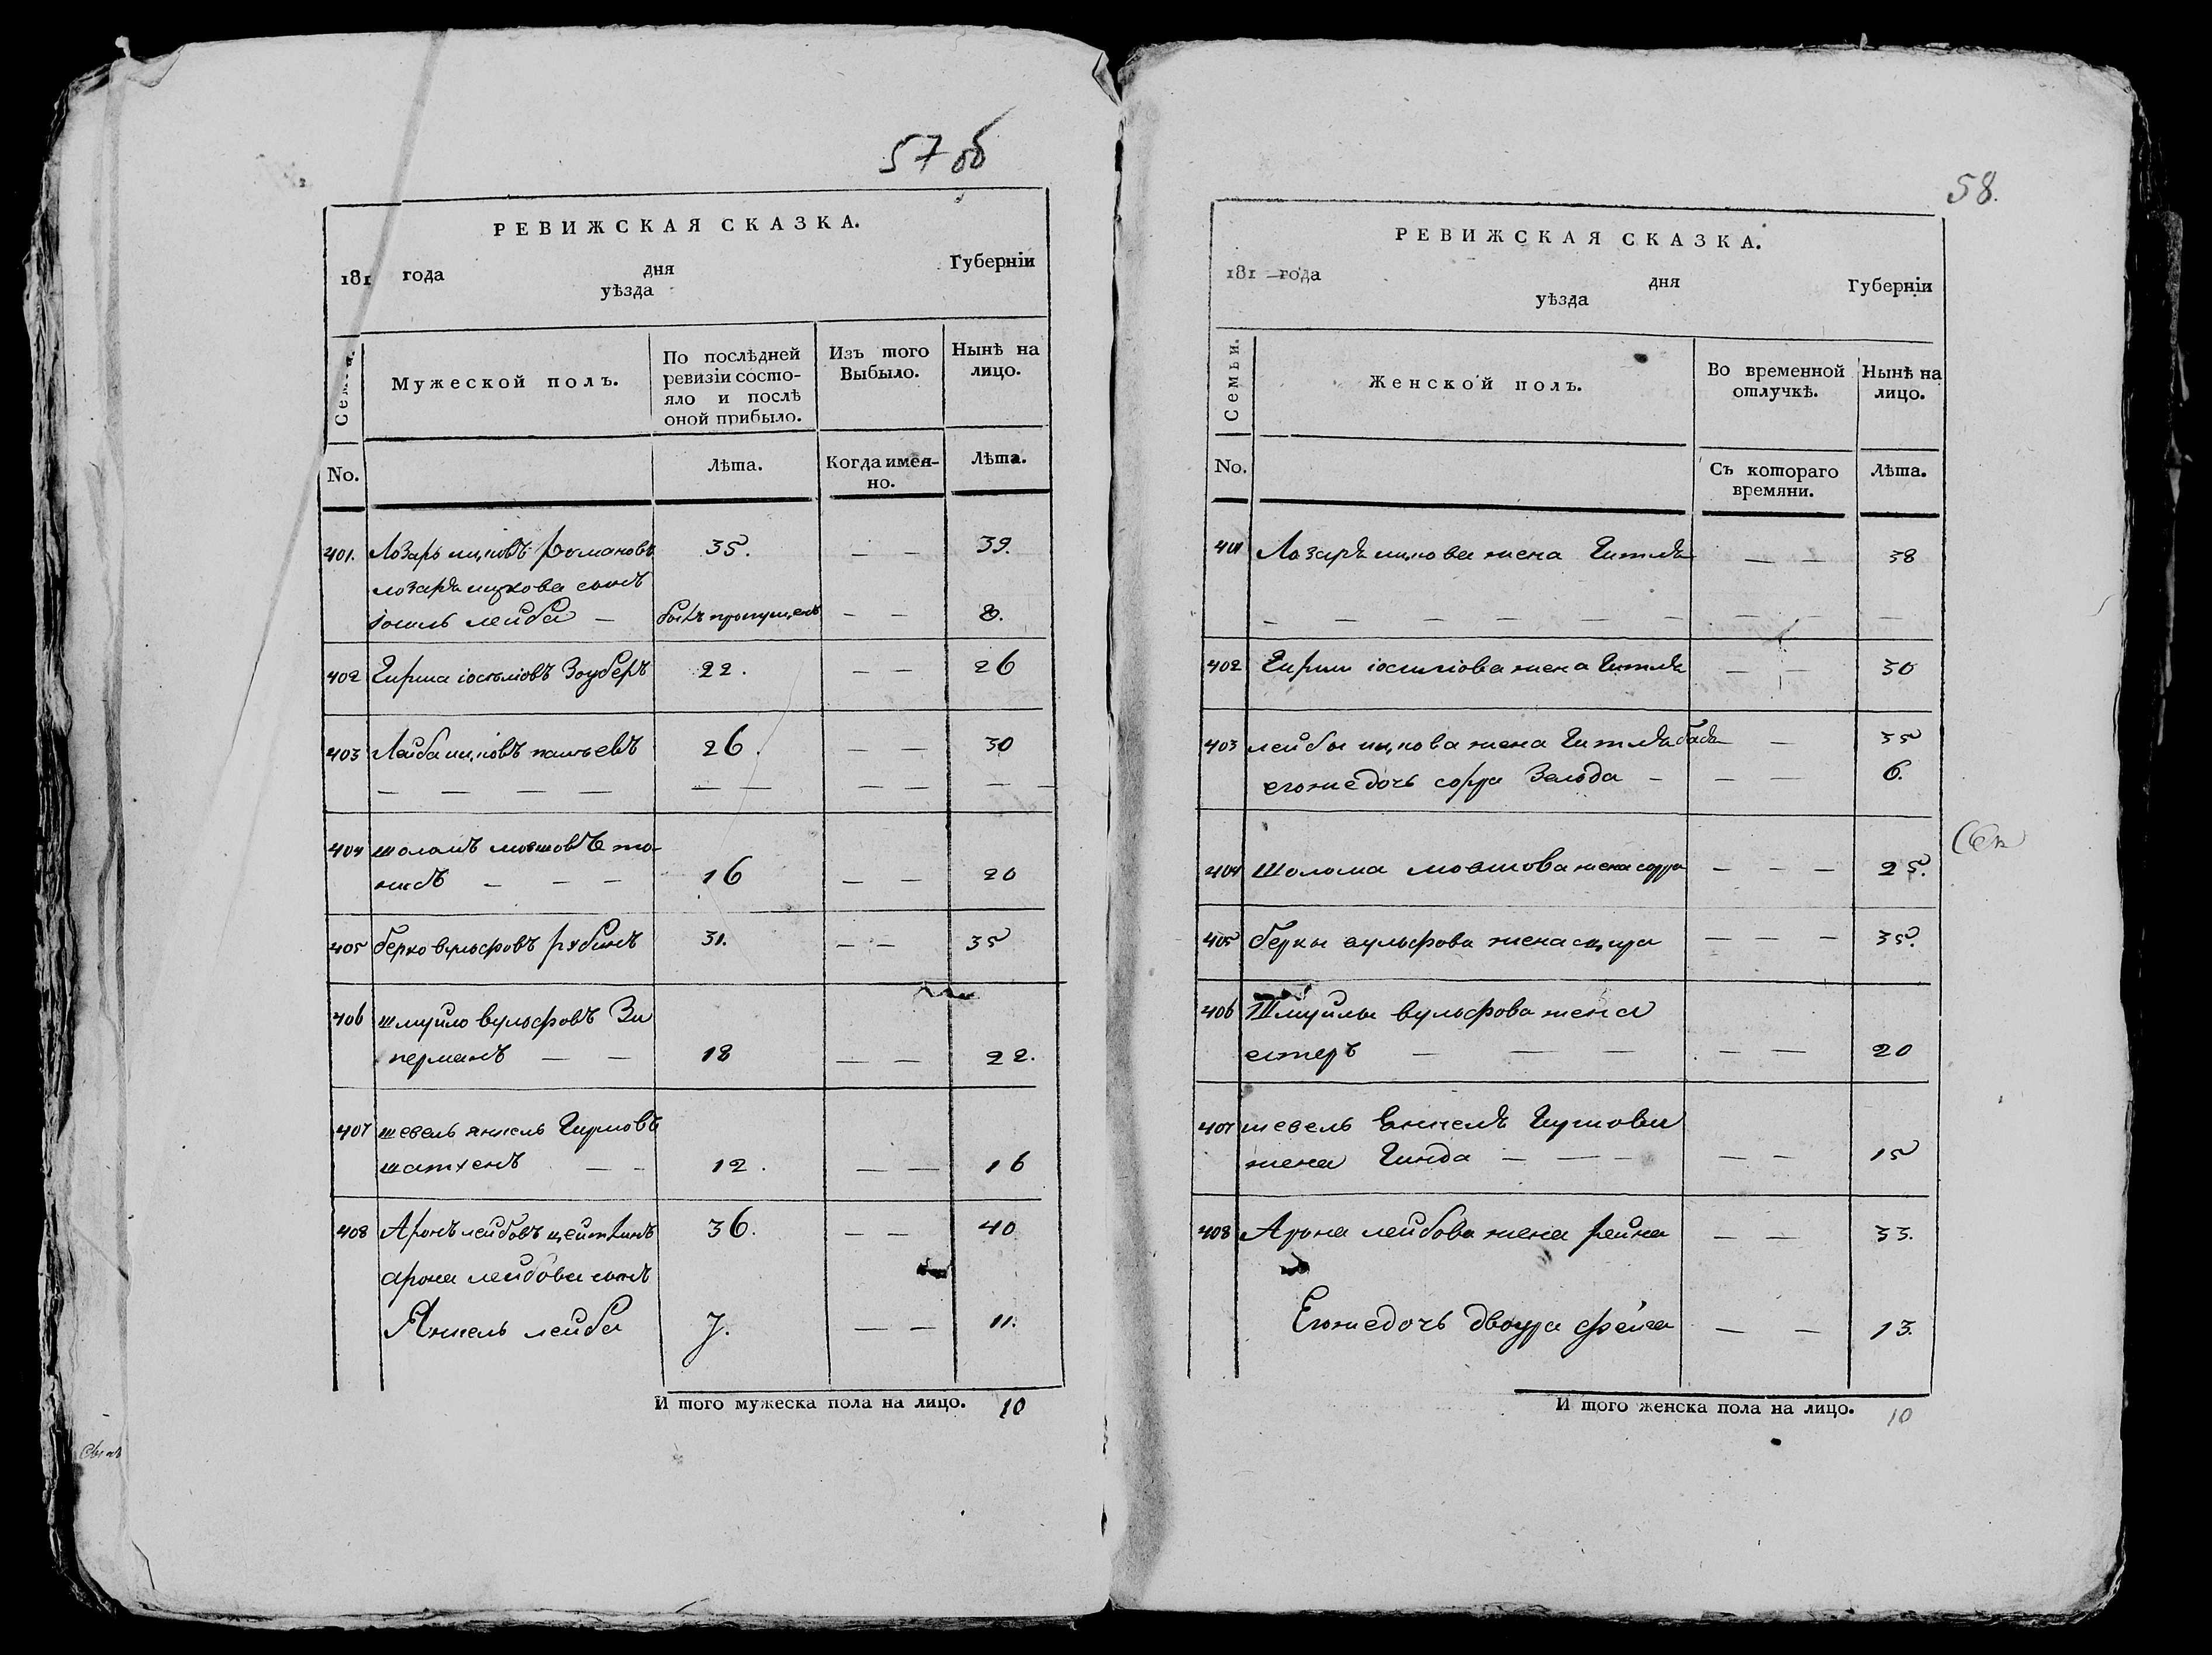 57 об
РЕВИЖСКАЯ СКАЗКА.
181 года дня Губернїи
уѣзда
Семьи.
Мужеской полъ.
По послѣдней ревизїи состояло и послѣ оной прибыло.
Изъ того Выбыло.
Нынѣ на лицо.
No.
Лѣта.
Когда именно.
Лѣта.
401. Лозарь ицковъ романовъ 35. — — 39.
лозаря ицкова сынъ
іосель лейба — былъ пропущенъ — — 8.
402 Гирша іосельовъ Зоуберъ 22. — — 26
403 Лейба ицковъ 26. — — 30
— — — — — — — — — —
404 шоломъ мовшовъ
— — — 16 — — 20
405 берко вульфовъ рубинъ 31. — — 35
406 шмуйло вульфовъ Зи
перманъ — — 18 — — 22.
407 шевель янкель Гиршовъ
шатхенъ — — 12. — — 16
408 Аронъ лейбовъ цейтлинъ 36. — — 40
арона лейбова сынъ
Янкель лейба 7. — — 11.
И того мужеска пола на лицо. 10
58.
РЕВИЖСКАЯ СКАЗКА.
181 — года дня Губернїи
уѣзда
Семьи.
Женской полъ.
Во временной отлучкѣ.
Нынѣ на лицо.
No.
Съ котораго времяни.
Лѣта.
401 Лозаря ицкова жена Гитля — — 38
— — — — — — — — —
402 Гирши іосильова жена Гитля — — 30
403 лейбы ицкова жена Гитля бадя — — 35
егожедочь сорра Зельда — — — 6.
404 Шолома мовшова жена сорра — — — 25.
405 берки вульфова жена сцира — — — 35.
406 Шмуйлы вульфова жена
естеръ — — — — — 20
407 шевель Енкеля Гиршова
жена Гинда — — — — — 15
408 Арона лейбова жена рейна — — 33.
Егожедочь двоура фейга — — 13.
И того женска пола на лицо. 10